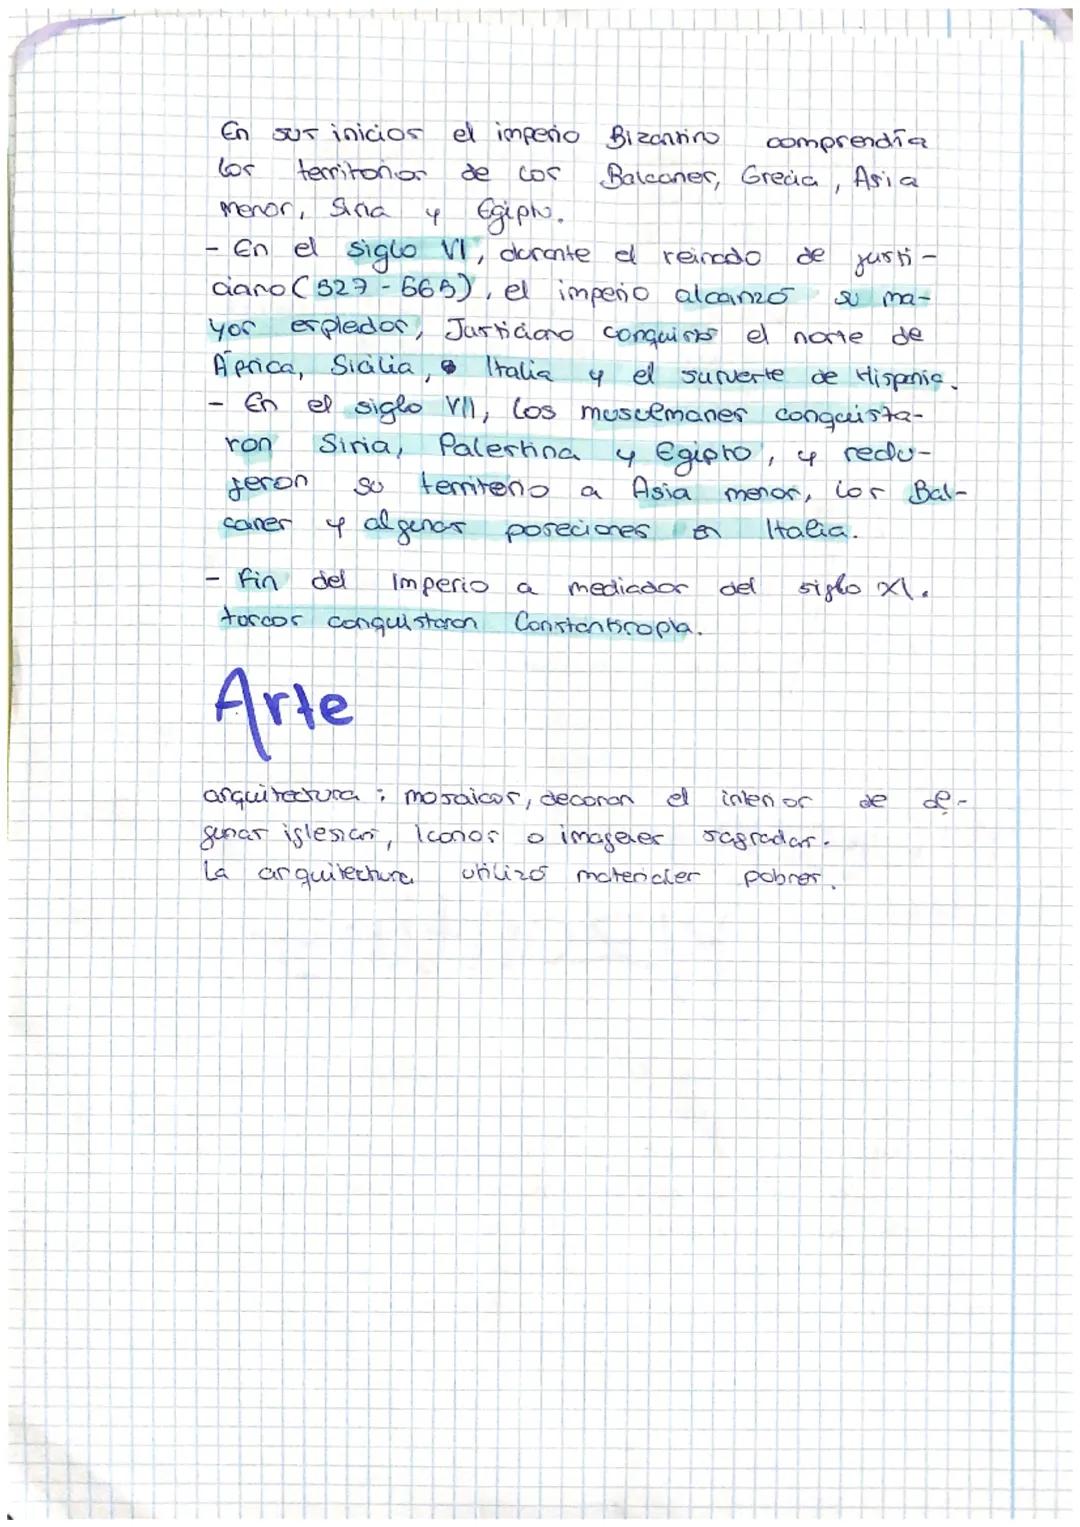 En sus inicios el imperio Bizantino comprendía
los territorios de los Balcanes, Grecia, Asia
menor, Siria y Egipto.
- En el siglo VI, durante el reinado de justi-
ciano (527-565), el imperio alcanzó su ma-
yor espledor, Justiciano conquistó el norte de
África, Sicilia, Italia y el surverte de Hispania.
- En el siglo VII, los musulmanes conquista-
ron Siria, Palestina y Egipto, y redu-
jeron su territerio a Asia menor, los Bal-
canes y algunas poseciones en Italia.
- Fin del Imperio a mediados del siglo XI.
turcos conquistaron Constantinopla.
Arte
arquitectura: mosaicos, decoran el interior de al-
gunas iglesias, Iconos o imagenes sagradas.
La arquitectura utilizó materiales pobres.